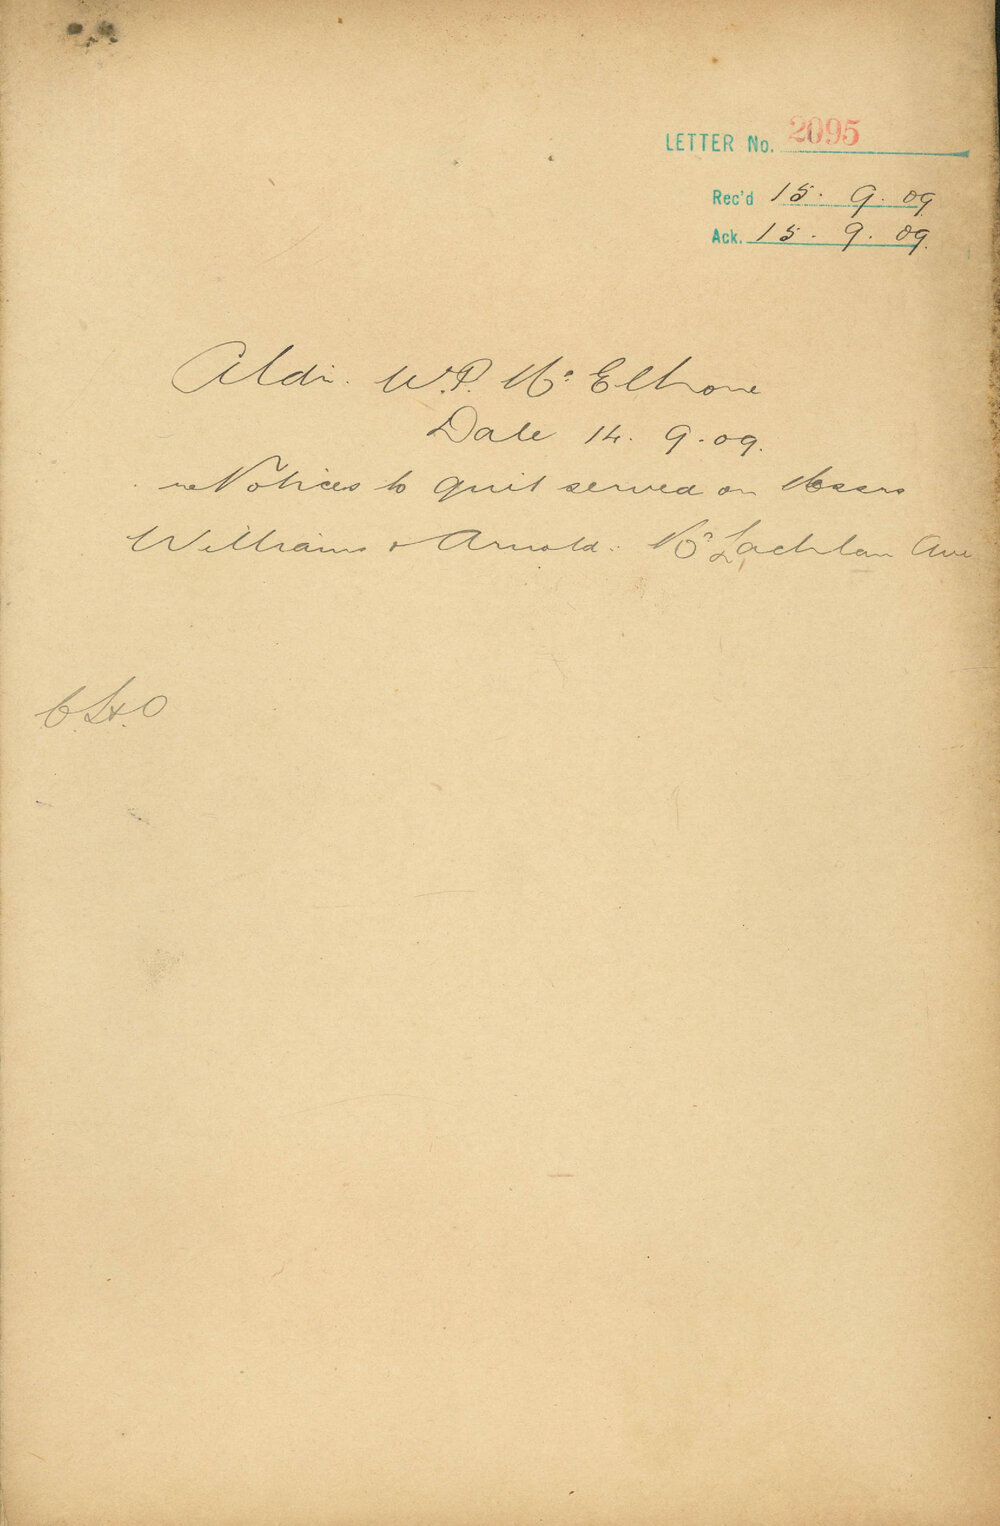 LETTER No. 2095
Rec'd 15. 9. 09
Ack. 15. 9. 09.
Aldr. W.P. Mc Elhone
Date 14. 9. 09.
re Notices to quit served on Messrs
Williams & Arnold. McLachlan Ave
C.H.O